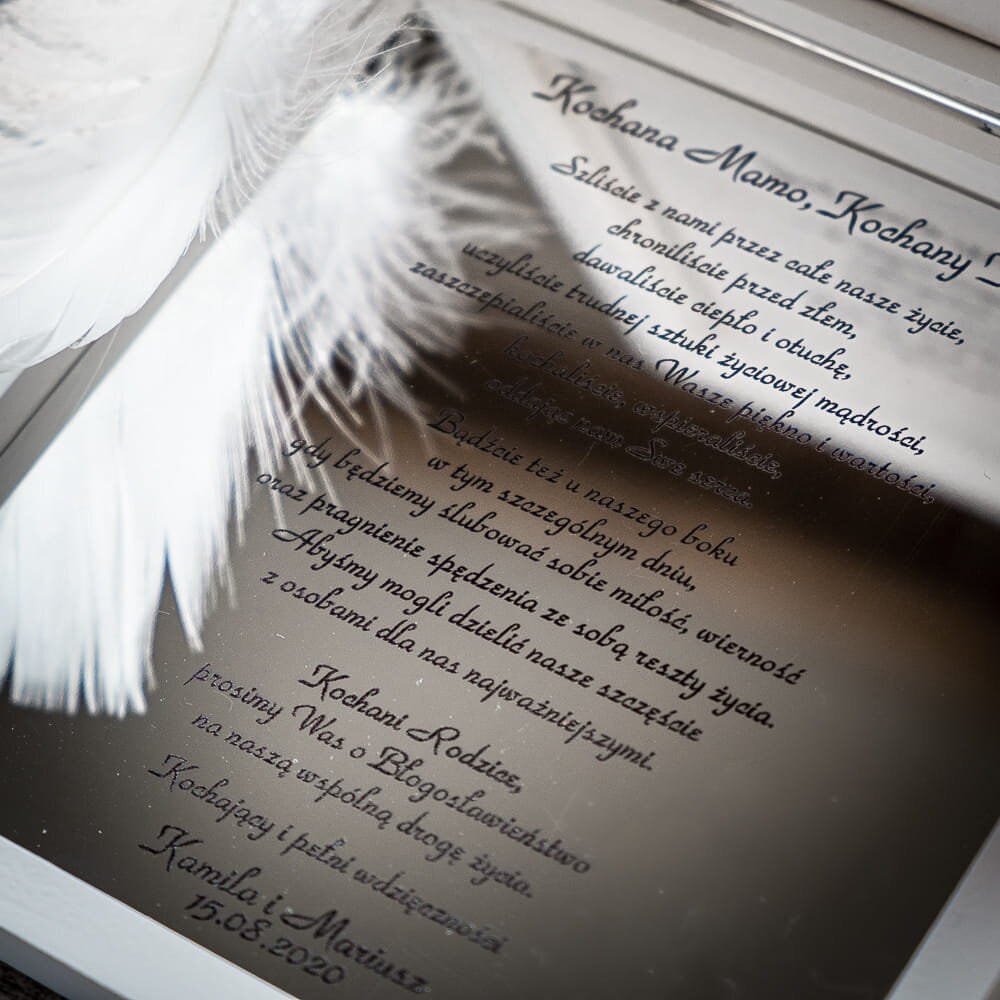 Kochana Mamo, Kochany
Szliście z nami przez całe nasze życie,
chroniliście przed złem,
dawaliście ciepło i otuchę,
uczyliście trudnej sztuki życiowej mądrości,
zaszczepialiście w nas Wasze piękno i wartości,
kochaliście, wspieraliście,
oddając nam Swe serca.
Bądźcie też u naszego boku
w tym szczególnym dniu,
gdy będziemy ślubować sobie miłość, wierność
oraz pragnienie spędzenia ze sobą reszty życia.
Abyśmy mogli dzielić nasze szczęście
z osobami dla nas najważniejszymi.
Kochani Rodzice,
prosimy Was o Błogosławieństwo
na naszą wspólną drogę życia.
Kochający i pełni wdzięczności
Kamila i Mariusz
15.08.2020